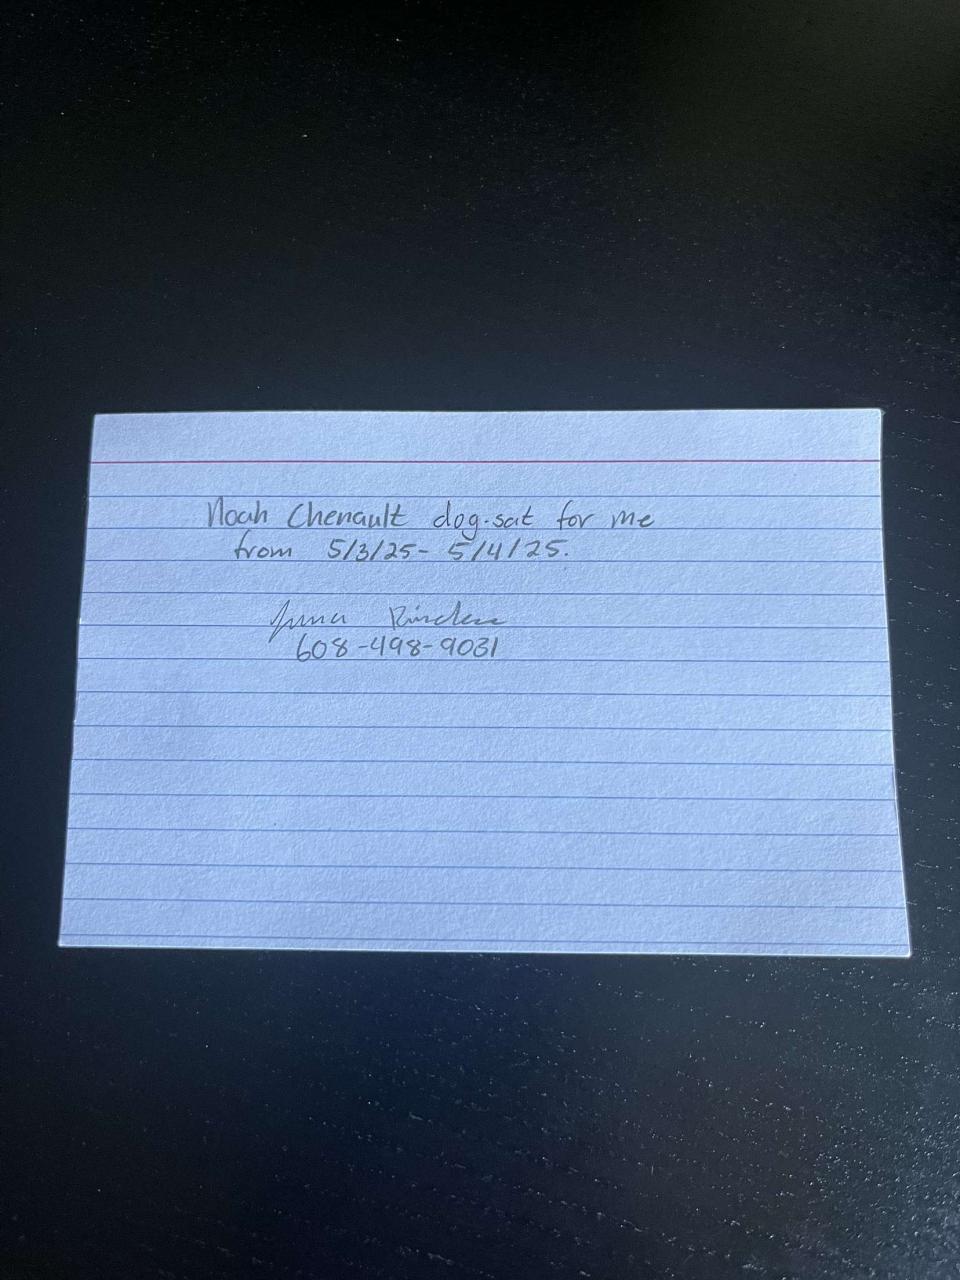 Noah Chenault dog-sat for me
from 5/3/25- 5/4/25.
608-498-9031